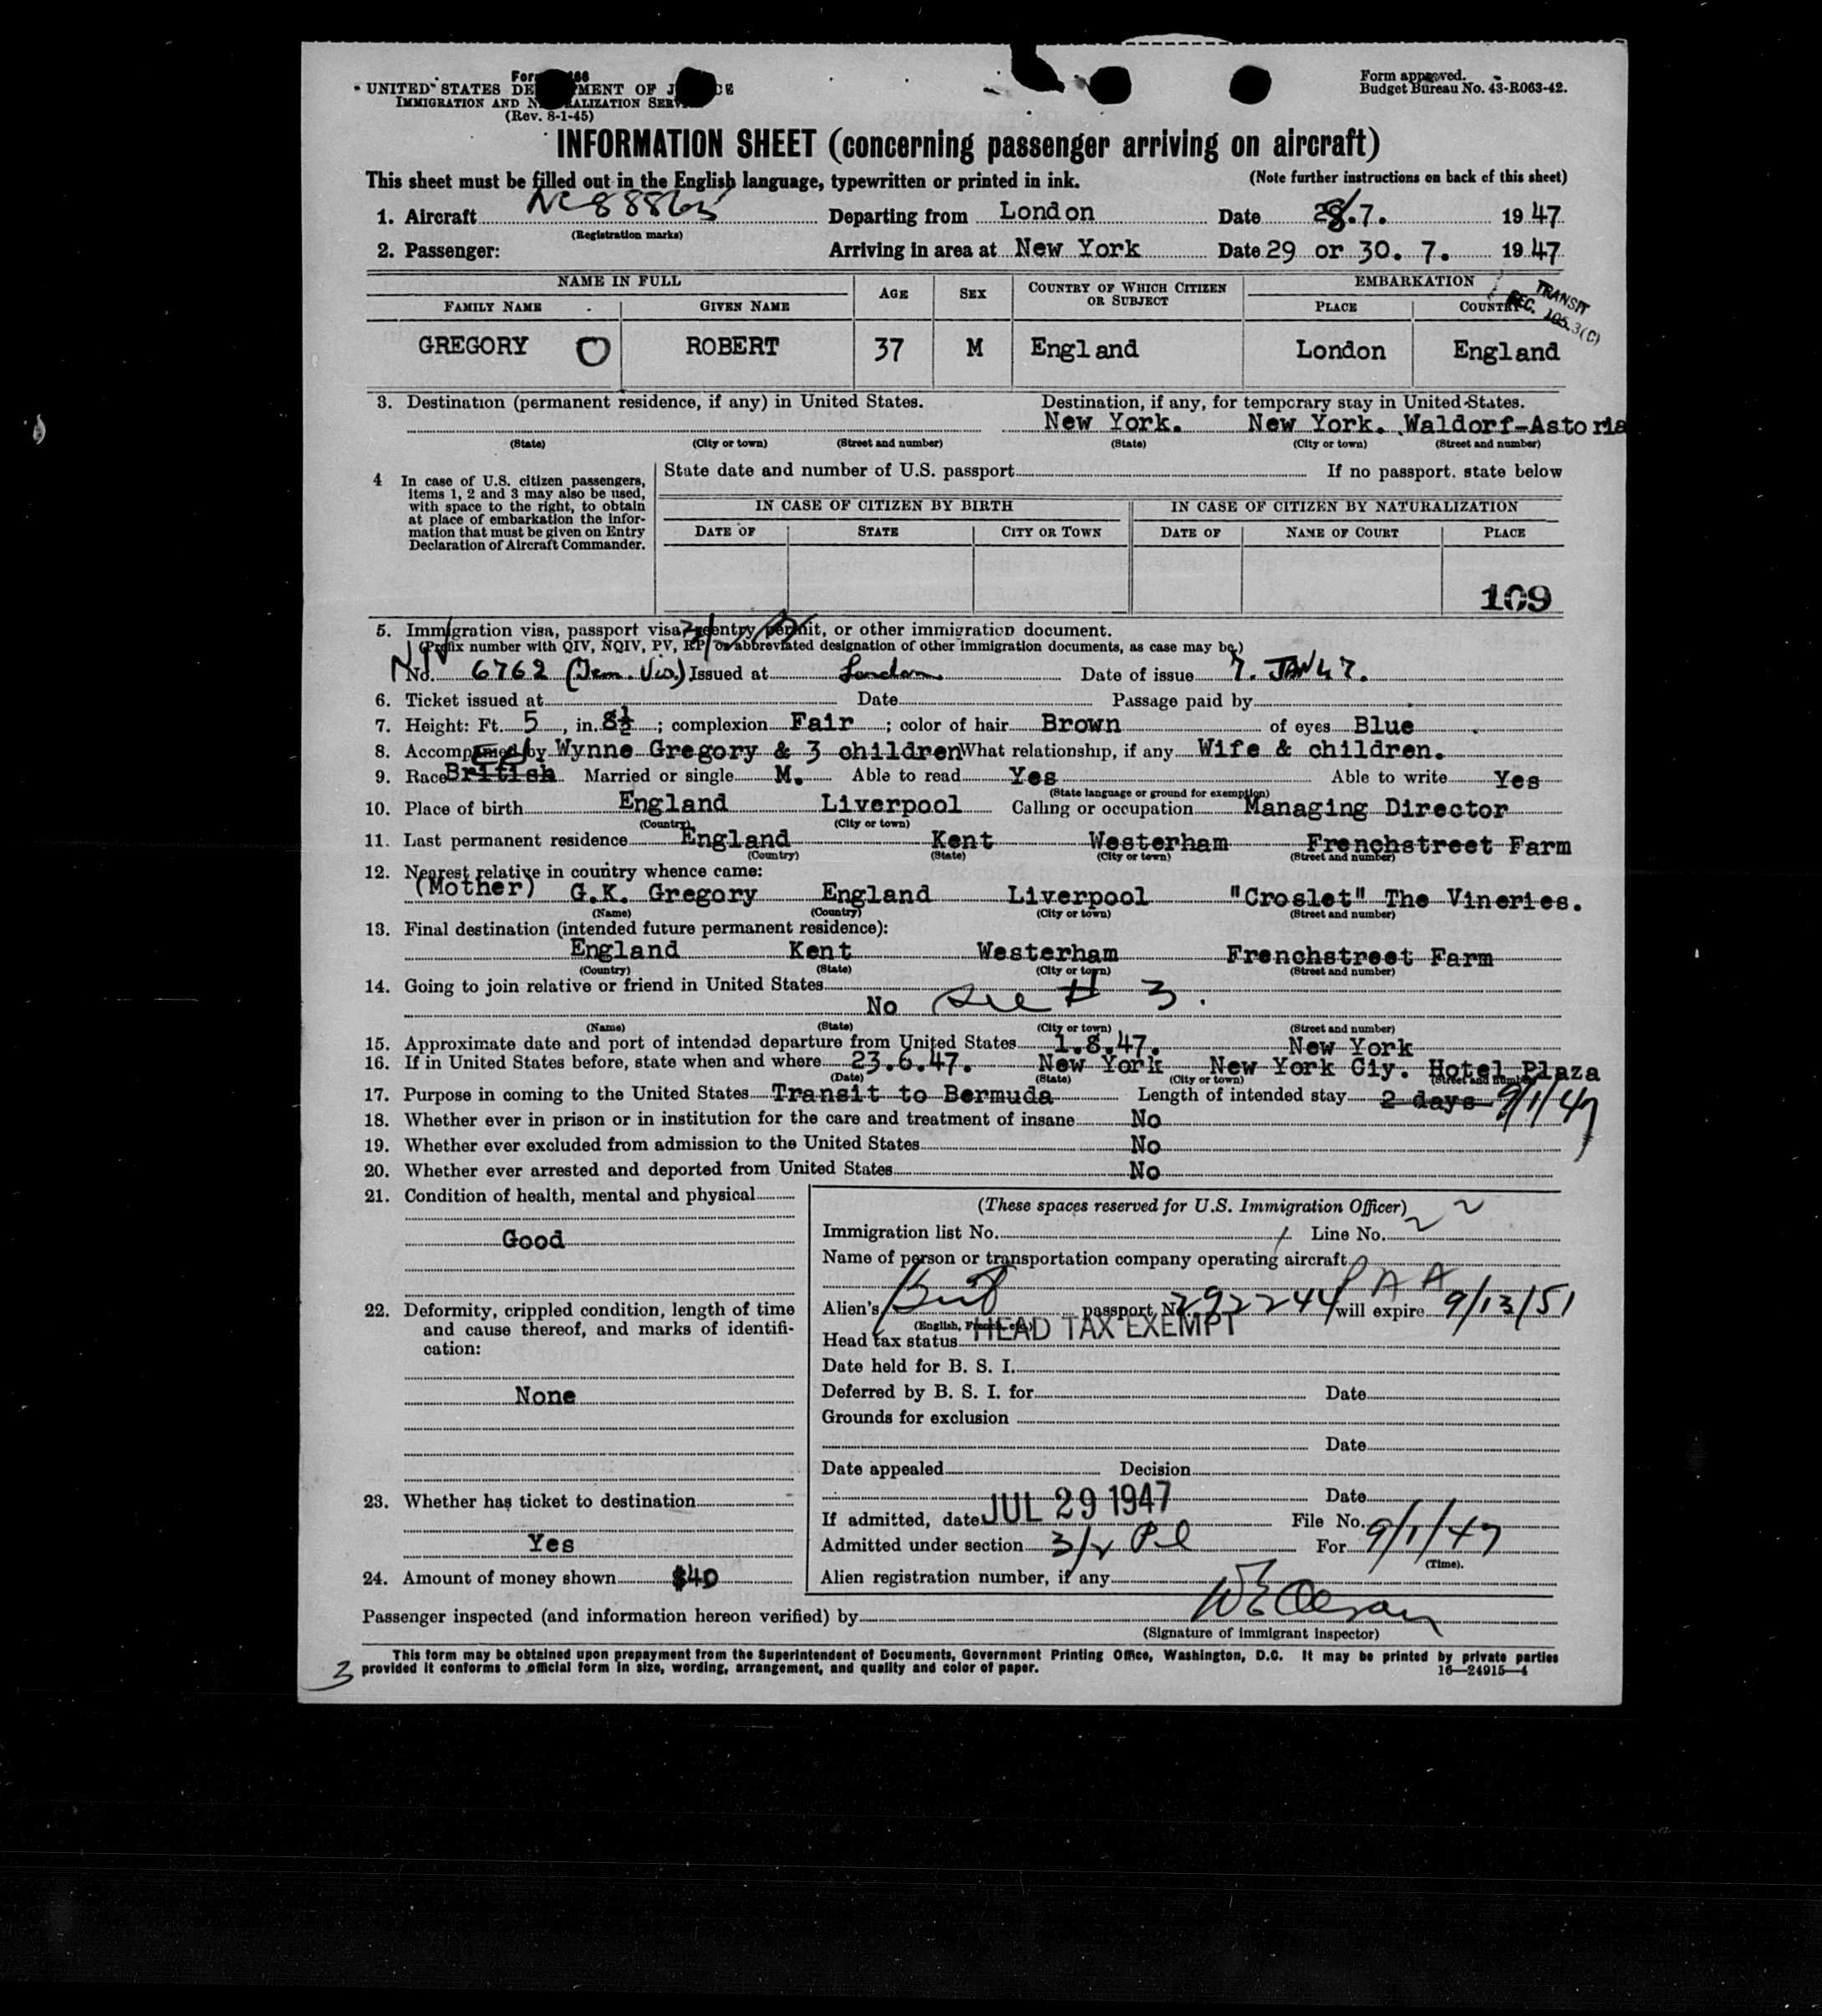 Form
UNITED STATES DEPARTMENT OF JUSTICE
IMMIGRATION AND NATURALIZATION SERVICE
(Rev. 8-1-45)
Form approved.
Budget Bureau No. 43-R063-42.
INFORMATION SHEET (concerning passenger arriving on aircraft)
This sheet must be filled out in the English language, typewritten or printed in ink. (Note further instructions on back of this sheet)
1. Aircraft Departing from London Date 28.7. 1947
(Registration marks)
2. Passenger: Arriving in area at New York Date 29 or 30. 7. 1947
NAME IN FULL AGE SEX COUNTRY OF WHICH CITIZEN OR SUBJECT EMBARKATION
FAMILY NAME GIVEN NAME PLACE COUNTRY
TRANSIT
SEC. 105.3(C)
GREGORY ROBERT 37 M England London England
3. Destination (permanent residence, if any) in United States. Destination, if any, for temporary stay in United States.
New York. New York. Waldorf-Astoria
(State) (City or town) (Street and number) (State) (City or town) (Street and number)
4 In case of U.S. citizen passengers, items 1, 2 and 3 may also be used, with space to the right, to obtain at place of embarkation the information that must be given on Entry Declaration of Aircraft Commander.
State date and number of U.S. passport If no passport, state below
IN CASE OF CITIZEN BY BIRTH IN CASE OF CITIZEN BY NATURALIZATION
DATE OF STATE CITY OR TOWN DATE OF NAME OF COURT PLACE
109
5. Immigration visa, passport visa, reentry permit, or other immigration document.
(Prefix number with QIV, NQIV, PV, RP, or abbreviated designation of other immigration documents, as case may be.)
No. 6762 (Tem. Vis.) Issued at London Date of issue 7. JAN 47.
6. Ticket issued at Date Passage paid by
7. Height: Ft. 5, in. 8½; complexion Fair; color of hair Brown of eyes Blue
8. Accompanied by Wynne Gregory & 3 children What relationship, if any Wife & children.
9. Race British Married or single M. Able to read Yes Able to write Yes
(State language or ground for exemption)
10. Place of birth England Liverpool Calling or occupation Managing Director
(Country) (City or town)
11. Last permanent residence England Kent Westerham Frenchstreet Farm
(Country) (State) (City or town) (Street and number)
12. Nearest relative in country whence came:
(Mother) G.K. Gregory England Liverpool "Croslet" The Vineries.
(Name) (Country) (City or town) (Street and number)
13. Final destination (intended future permanent residence):
England Kent Westerham Frenchstreet Farm
(Country) (State) (City or town) (Street and number)
14. Going to join relative or friend in United States
No See # 3.
(Name) (State) (City or town) (Street and number)
15. Approximate date and port of intended departure from United States 1.8.47. New York
16. If in United States before, state when and where 23.6.47. New York New York Ciy. Hotel Plaza
(Date) (State) (City or town) (Street and number)
17. Purpose in coming to the United States Transit to Bermuda Length of intended stay 2 days 9/1/47
18. Whether ever in prison or in institution for the care and treatment of insane No
19. Whether ever excluded from admission to the United States No
20. Whether ever arrested and deported from United States No
21. Condition of health, mental and physical
Good
22. Deformity, crippled condition, length of time and cause thereof, and marks of identification:
None
23. Whether has ticket to destination
Yes
24. Amount of money shown $40
(These spaces reserved for U.S. Immigration Officer)
Immigration list No. Line No. 2
Name of person or transportation company operating aircraft
PAA
Alien's Brit passport No. 292244 will expire 9/13/51
(English, French, etc.)
Head tax status HEAD TAX EXEMPT
Date held for B. S. I.
Deferred by B. S. I. for Date
Grounds for exclusion
Date
Date appealed Decision
Date
If admitted, date JUL 29 1947 File No.
Admitted under section 3/2 For 9/1/47
(Time).
Alien registration number, if any
Passenger inspected (and information hereon verified) by
(Signature of immigrant inspector)
This form may be obtained upon prepayment from the Superintendent of Documents, Government Printing Office, Washington, D.C. It may be printed by private parties
provided it conforms to official form in size, wording, arrangement, and quality and color of paper. 16—24915—4
3